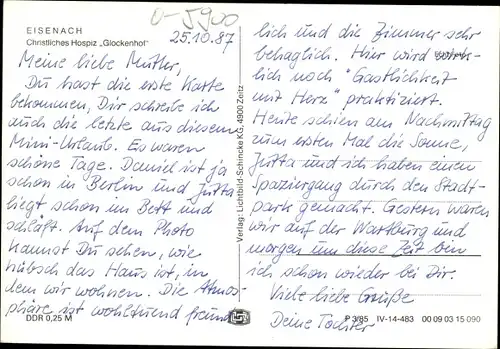 EISENACH
Christliches Hospiz „Glockenhof"
0-5900
25.10.87
Meine liebe Mutter,
Du hast die erste Karte
bekommen, Dir schreibe ich
auch die letzte aus diesem
Mini-Urlaub. Es waren
schöne Tage. Daniel ist ja
schon in Berlin und Jutta
liegt schon im Bett und
schläft. Auf dem Photo
kannst Du sehen, wie
hübsch das Haus ist, in
dem wir wohnen. Die Atmos-
phäre ist wohltuend freund
DDR 0,25 M
Verlag: Lichtbild-Schincke KG, 4900 Zeitz
lich und die Zimmer sehr
behaglich. Hier wird wirk-
lich noch "Gastlichkeit
mit Herz" praktiziert.
Heute schien am Nachmittag
zum ersten Mal die Sonne,
Jutta und ich haben einen
Spaziergang durch den Stadt-
park gemacht. Gestern waren
wir auf der Wartburg und
morgen um diese Zeit bin
ich schon wieder bei Dir.
Viele liebe Grüße
Deine Tochter
P 3/85 IV-14-483 00 09 03 15 090